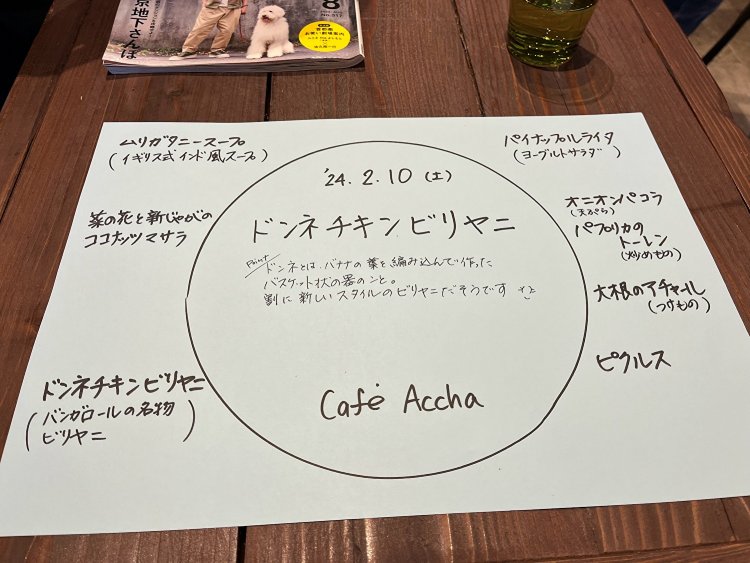 8
No.517
京地下さんぽ
ムリガタニースープ
(イギリス式インド風スープ)
菜の花と新じゃがの
ココナッツマサラ
ドンネチキンビリヤニ
(バンガロールの名物
ビリヤニ)
'24. 2. 10 (土)
ドンネチキンビリヤニ
Point
ドンネとは、バナナの葉を編み込んで作った
バスケット状の器のこと。
割に新しいスタイルのビリヤニだそうです
Café Accha
パイナップルライタ
(ヨーグルトサラダ)
オニオンパコラ
(天ぷら)
パプリカの
トーレン
(炒めもの)
大根のアチャール
(つけもの)
ピクルス